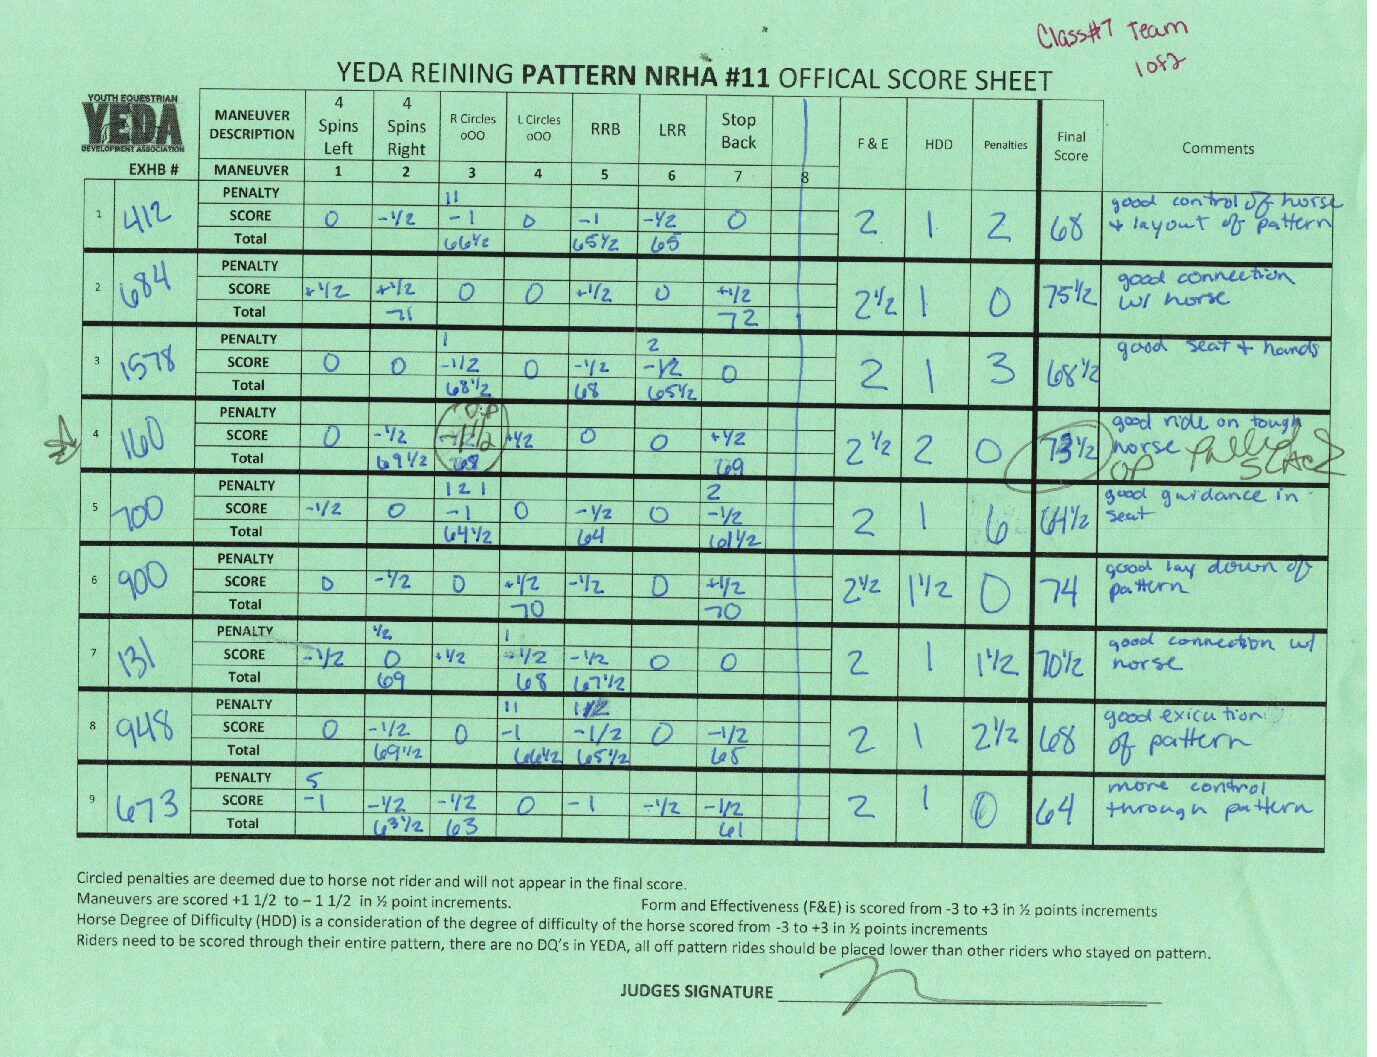 Class#7 Team
1 of 2
YEDA REINING PATTERN NRHA #11 OFFICAL SCORE SHEET
YOUTH EQUESTRIAN
YEDA
DEVELOPMENT ASSOCIATION
EXHB #
MANEUVER DESCRIPTION 4 Spins Left 4 Spins Right R Circles oOO L Circles oOO RRB LRR Stop Back F & E HDD Penalties Final Score Comments
MANEUVER 1 2 3 4 5 6 7 8
1 412
PENALTY 11
SCORE 0 -1/2 -1 0 -1 -1/2 0 2 1 2 68
Total 66 1/2 65 1/2 65
good control of horse
+ layout of pattern
2 684
PENALTY
SCORE +1/2 +1/2 0 0 +1/2 0 +1/2 2 1/2 1 0 75 1/2
Total 71 72
good connection
w/ horse
3 1578
PENALTY 1 2
SCORE 0 0 -1/2 0 -1/2 -1/2 0 2 1 3 68 1/2
Total 68 1/2 68 65 1/2
good seat + hands
4 160
PENALTY O.P
SCORE 0 -1/2 -1 1/2 +1/2 0 0 +1/2 2 1/2 2 0 73 1/2
Total 69 1/2 68 69
good ride on tough
horse
OP Pulled Slack
5 700
PENALTY 1 2 1 2
SCORE -1/2 0 -1 0 -1/2 0 -1/2 2 1 6 64 1/2
Total 64 1/2 64 61 1/2
good guidance in
seat
6 900
PENALTY
SCORE 0 -1/2 0 +1/2 -1/2 0 +1/2 2 1/2 1 1/2 0 74
Total 70 70
good lay down of
pattern
7 131
PENALTY 1/2 1
SCORE -1/2 0 +1/2 -1/2 -1/2 0 0 2 1 1 1/2 70 1/2
Total 69 68 67 1/2
good connection w/
horse
8 948
PENALTY 11 1/2
SCORE 0 -1/2 0 -1 -1/2 0 -1/2 2 1 2 1/2 68
Total 69 1/2 66 1/2 65 1/2 65
good exicution
of pattern
9 673
PENALTY 5
SCORE -1 -1/2 -1/2 0 -1 -1/2 -1/2 2 1 0 64
Total 63 1/2 63 61
more control
through pattern
Circled penalties are deemed due to horse not rider and will not appear in the final score.
Maneuvers are scored +1 1/2 to – 1 1/2 in ½ point increments. Form and Effectiveness (F&E) is scored from -3 to +3 in ½ points increments
Horse Degree of Difficulty (HDD) is a consideration of the degree of difficulty of the horse scored from -3 to +3 in ½ points increments
Riders need to be scored through their entire pattern, there are no DQ's in YEDA, all off pattern rides should be placed lower than other riders who stayed on pattern.
JUDGES SIGNATURE